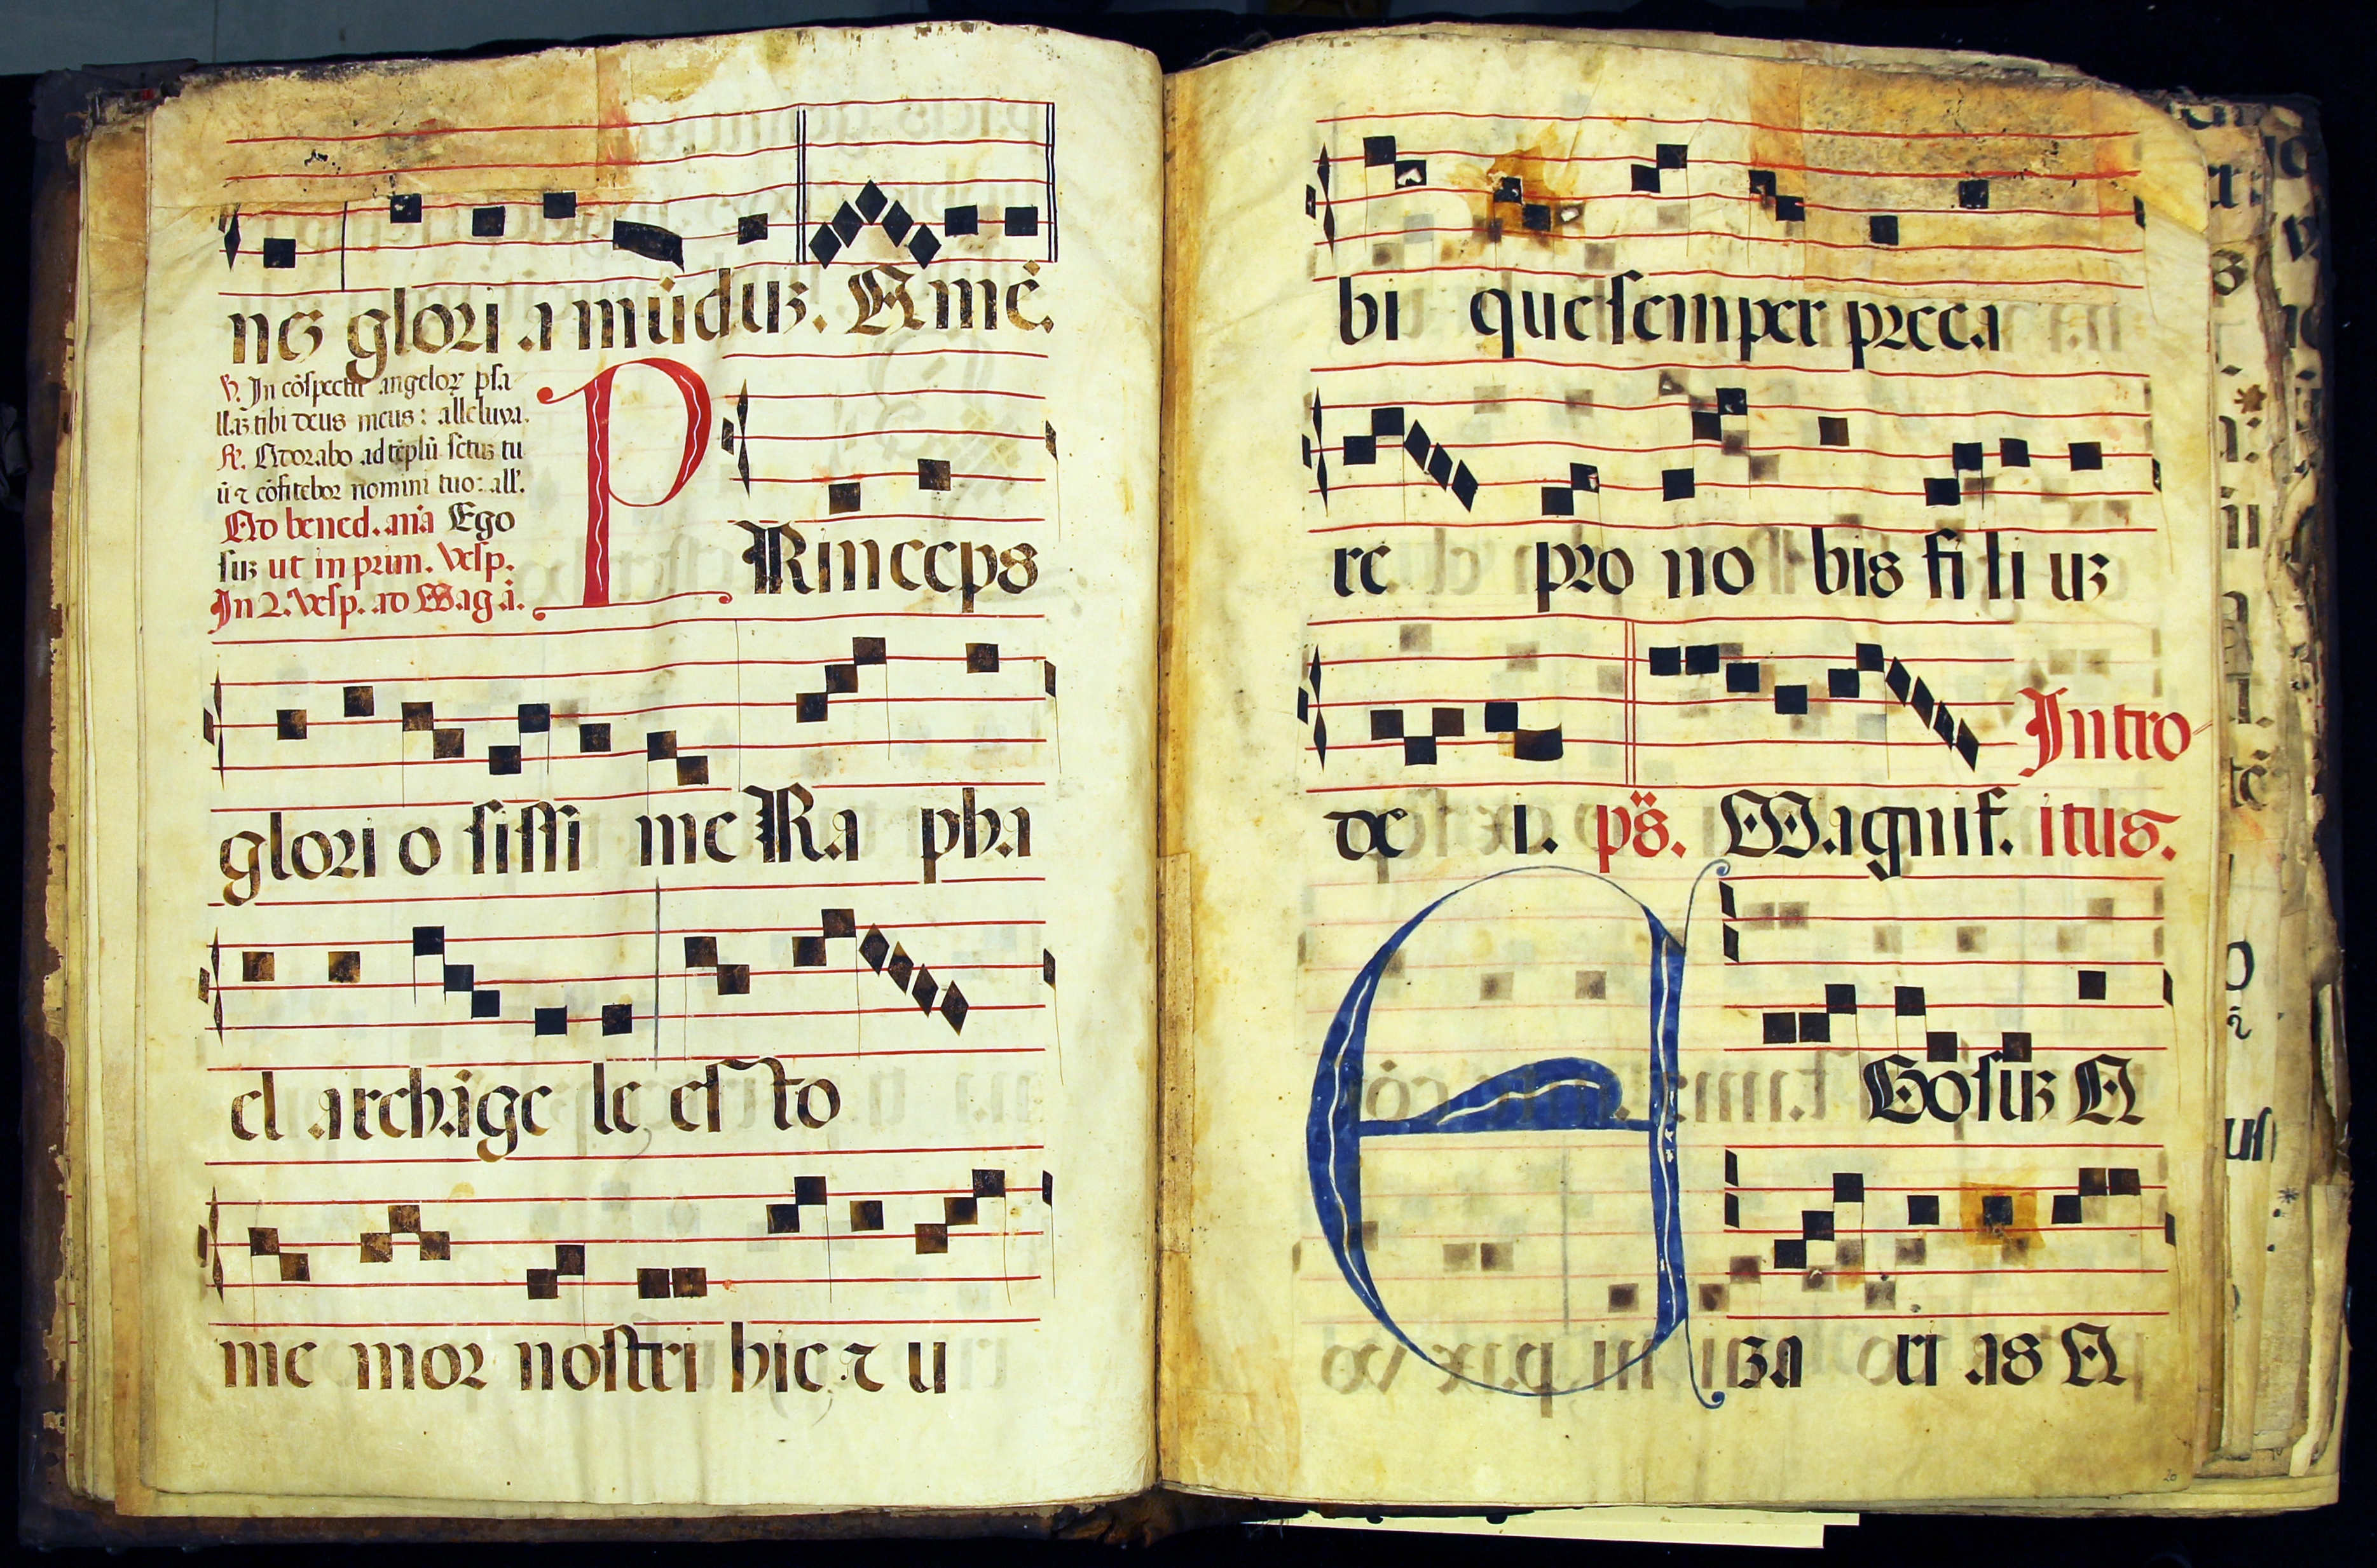 nis glori a mūduȝ. Amē.
℣. In cōspectu angeloꝝ psa
llaȝ tibi deus meus: alleluya.
℟. Adorabo ad tēplū sctuȝ tu
ū ⁊ cōfitebor nomini tuo: all'.
Ad bened. aña Ego
suȝ ut in prim. Vesp.
In 2. Vesp. ad Mag. ā.
PRinceps
glori o sissi me Ra pha
el archāge le esto
me mor nostri hic ⁊ u
bi que semper preca
re pro no bis fi li uȝ
Intro
de i. ps̄. Magnif. itus.
EGo suȝ A
za ri as A
20